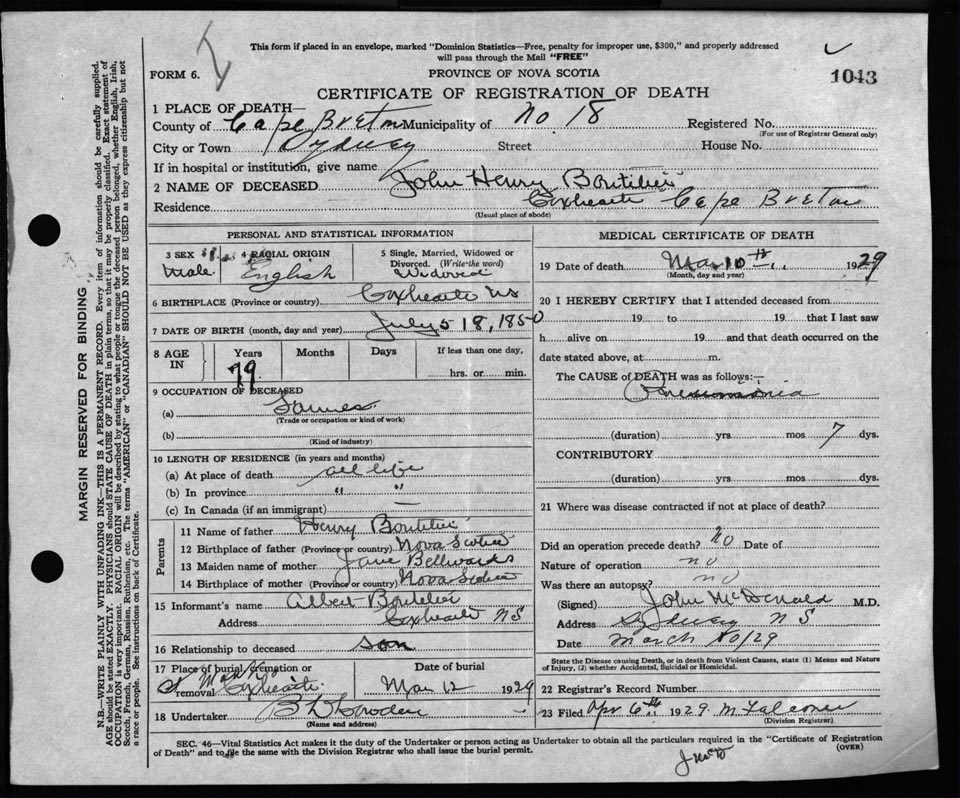 This form if placed in an envelope, marked "Dominion Statistics—Free, penalty for improper use, $300," and properly addressed
will pass through the Mail "FREE"
FORM 6.
PROVINCE OF NOVA SCOTIA
1043
CERTIFICATE OF REGISTRATION OF DEATH
1 PLACE OF DEATH—
County of Cape Breton Municipality of No 18 Registered No.
(For use of Registrar General only)
City or Town Sydney Street House No.
If in hospital or institution, give name
2 NAME OF DECEASED John Henry Boutilier
Residence Coxheath Cape Breton
(Usual place of abode)
PERSONAL AND STATISTICAL INFORMATION
3 SEX Male
4 RACIAL ORIGIN English
5 Single, Married, Widowed or Divorced. (Write the word) Widowed
6 BIRTHPLACE (Province or country) Coxheath NS
7 DATE OF BIRTH (month, day and year) July 5 18, 1850
8 AGE IN Years 79 Months Days If less than one day, hrs. or min.
9 OCCUPATION OF DECEASED
(a)
(Trade or occupation or kind of work)
(b)
(Kind of industry)
10 LENGTH OF RESIDENCE (in years and months)
(a) At place of death all life
(b) In province " "
(c) In Canada (if an immigrant) —
Parents
11 Name of father Henry Boutilier
12 Birthplace of father (Province or country) Nova Scotia
13 Maiden name of mother Jane
14 Birthplace of mother (Province or country) Nova Scotia
15 Informant's name Albert Boutilier
Address Coxheath NS
16 Relationship to deceased son
17 Place of burial, cremation or removal Coxheath
Date of burial Mar 12 1929
18 Undertaker
(Name and address)
MEDICAL CERTIFICATE OF DEATH
19 Date of death Mar 10th 1929
(Month, day and year)
20 I HEREBY CERTIFY that I attended deceased from
19 to 19 that I last saw
h alive on 19 and that death occurred on the
date stated above, at m.
The CAUSE of DEATH was as follows:—
Pneumonia
(duration) yrs mos 7 dys.
CONTRIBUTORY
(duration) yrs. mos. dys.
21 Where was disease contracted if not at place of death?
Did an operation precede death? no Date of
Nature of operation no
Was there an autopsy? no
(Signed) John McDonald M.D.
Address Sydney NS
Date March 10/29
State the Disease causing Death, or in death from Violent Causes, state (1) Means and Nature
of Injury, (2) whether Accidental, Suicidal or Homicidal.
22 Registrar's Record Number
23 Filed Apr 6th 1929 M Falconer
(Division Registrar)
SEC. 46—Vital Statistics Act makes it the duty of the Undertaker or person acting as Undertaker to obtain all the particulars required in the "Certificate of Registration
of Death" and to file the same with the Division Registrar who shall issue the burial permit.
(OVER)
MARGIN RESERVED FOR BINDING
N.B.—WRITE PLAINLY WITH UNFADING INK—THIS IS A PERMANENT RECORD. Every item of information should be carefully supplied.
AGE should be stated EXACTLY. PHYSICIANS should STATE CAUSE OF DEATH in plain terms, so that it may be properly classified. Exact statement of
OCCUPATION is very important. RACIAL ORIGIN will be described by stating to what people or tongue the deceased person belonged, whether English, Irish,
Scotch, French, German, Russian, Ruthenian, etc. The terms "AMERICAN" or "CANADIAN" SHOULD NOT BE USED as they express citizenship but not
a race or people. See instructions on back of Certificate.